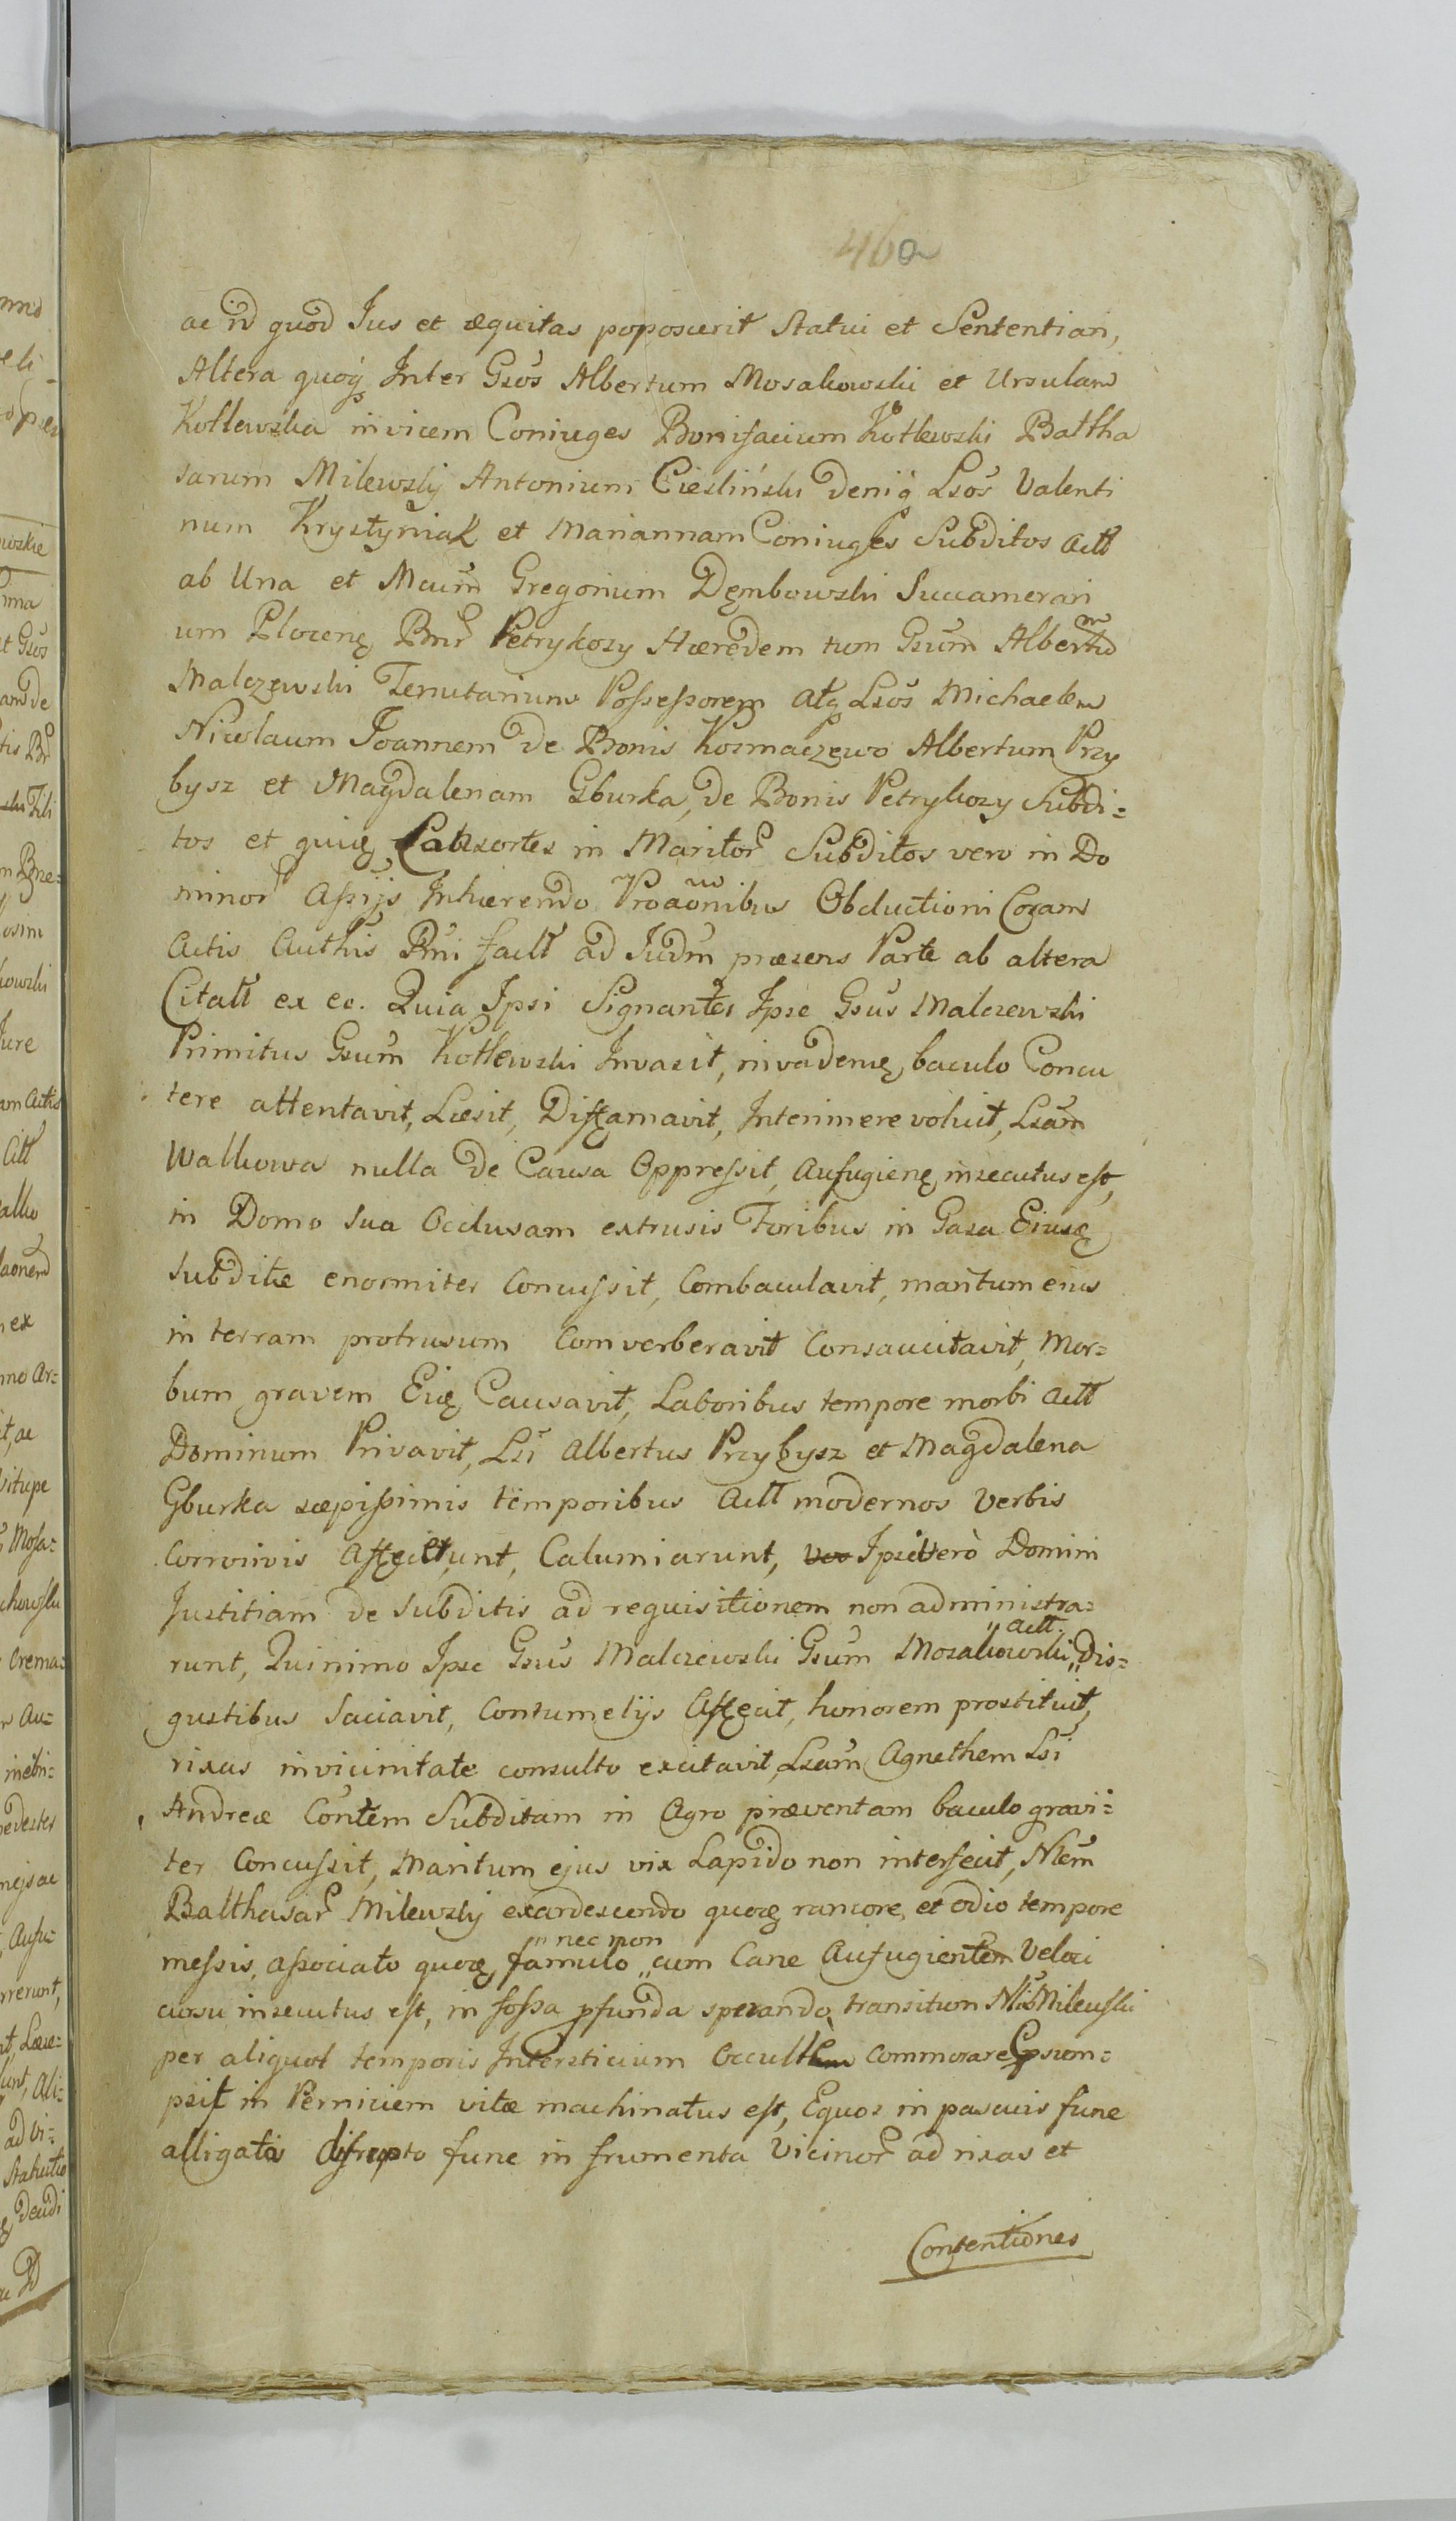 46a
ac id quod Ius et æquitas poposcerit Statui et Sententiari,
Altera quoq̃ Inter Gsōs Albertum Mosakowski et Ursulam
Kotlewska invicem Coniuges Bonifacium Kotlewski Baltha
sarum Milewsky Antonium Ciesliński deniq̃ Lsōs Valenti
num Krystyniak et Mariannam Coniuges Subditos Actt
ab Una et Mcum̃ Gregorium Dęmbowski Succamerari
um Plocenę Bnr̃ Petrykozy Hæredem tum Gsum̃ Albertum
Malczewski Tenutarium Possessorem atq̃ Lsōs Michaelem
Nicolaum Ioannem de Bonis Kosmaczewo Albertum Przy
bysz et Magdalenam Gburka, de Bonis Petrykozy Subdi=
tos et quię Consortes in Maritor̃ Subditos vero in Do
minor̃ Assijs Inhærendo Proaōnibus Obductioni Coram
Actis Authis Bñi factt ad Iudm̃ præsens Parte ab altera
Citatt ex eo. Quia Ipsi Signanter Ipse Gsus Malczewski
Primitus Gsum̃ Kotlewski Invasit, invadenę, baculo Concu
tere attentavit, Læsit, Diffamavit, Interimere voluit, Lsam̃
Walkowa nulla de Causa Oppressit, Aufugienę, insecutus est,
in Domo sua Occlusam extrusis Foribus in Casa Eiusę
subditæ enormiter Concussit, Combaculavit, maritum eius
in terram protrusum Comverberavit Consauciavit, Mor=
bum gravem Eię, Causavit, Laboribus tempore morbi Actt
Dominum Privavit, Lsi Albertus Przybysz et Magdalena
Gburka sæpissimis temporibus Actt modernos Verbis
Convivis Affecerunt, Calumiarunt, Ipsi Verò Domini
Justitiam de Subditis ad requisitionem non administra=
runt, Quinimo Ipse Gsus Malczewski Gsum Mosakowski „Actt. Dis=
gustibus Saciavit, Contumelijs Affecit, honorem prostituit,
rixas invicinitate consulto excitavit, Lsam̃ Agnethem Lsi
Andreæ Contem̃ Subditam in Agro præventam baculo gravi=
ter Concussit, Maritum ejus vix Lapido non interfecit, Nlem̃
Balthasar̃ Milewsky exardescendo quoę rancore, et odio tempore
messis, associato quoę, famulo „nec non cum Cane Aufugientem Veloci
cursu insecutus est, in fossa pfunda sperando transitum Nlis Milewski
per aliquot temporis Intersticium Occulte commorare psum=
psit in Perniciem vitæ machinatus est, Equos in pascuis fune
alligatos disrupto fune in frumenta Vicinor̃ ad rixas et
Contentiones